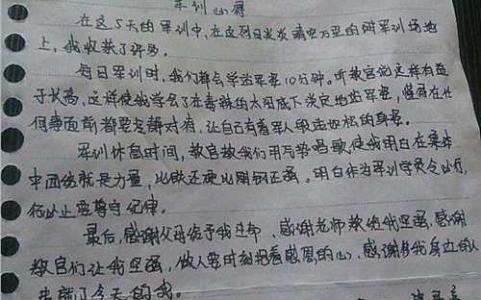 军训心得
在这5天的军训中,在这烈日炎炎晴空万里的阱军训场地
上,我收获了许多。
每日军训时,我们都会学站军姿10分钟。听教官说这样有益
于长高,这样使我学会了在毒辣的太阳底下淡定地站军姿,懂得在
何事面前都要冷静对待,让自己有着军人般连松的身姿。
军训休息时间,教官教我们用气势唱歌使我明白在集
中团结就是力量,比铁还硬比刚钢还强。明白作为军训学员令必行,
行必止要尊守纪律。
最后,感谢父母给予我生命、感谢老师教给我坚强,感谢
教官们让我坚强,做人要时刻抱着感恩的心,感谢身边的人
今天的我。